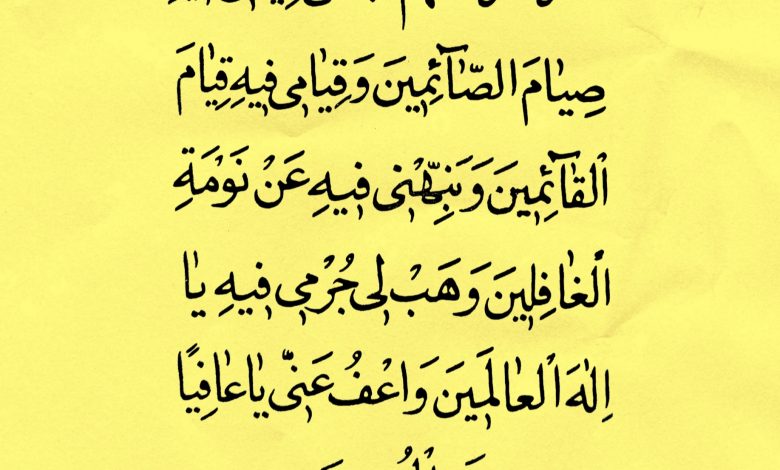 صِيامَ الصّآئِمينَ وَقِيامى فيهِ قِيامَ
الْقآئِمينَ وَنَبِّهْنى فيهِ عَنْ نَوْمَةِ
الْغافِلينَ وَهَبْ لى جُرْمى فيهِ يا
اِلٰهَ الْعالَمينَ وَاعْفُ عَنّى يا عافِيًا